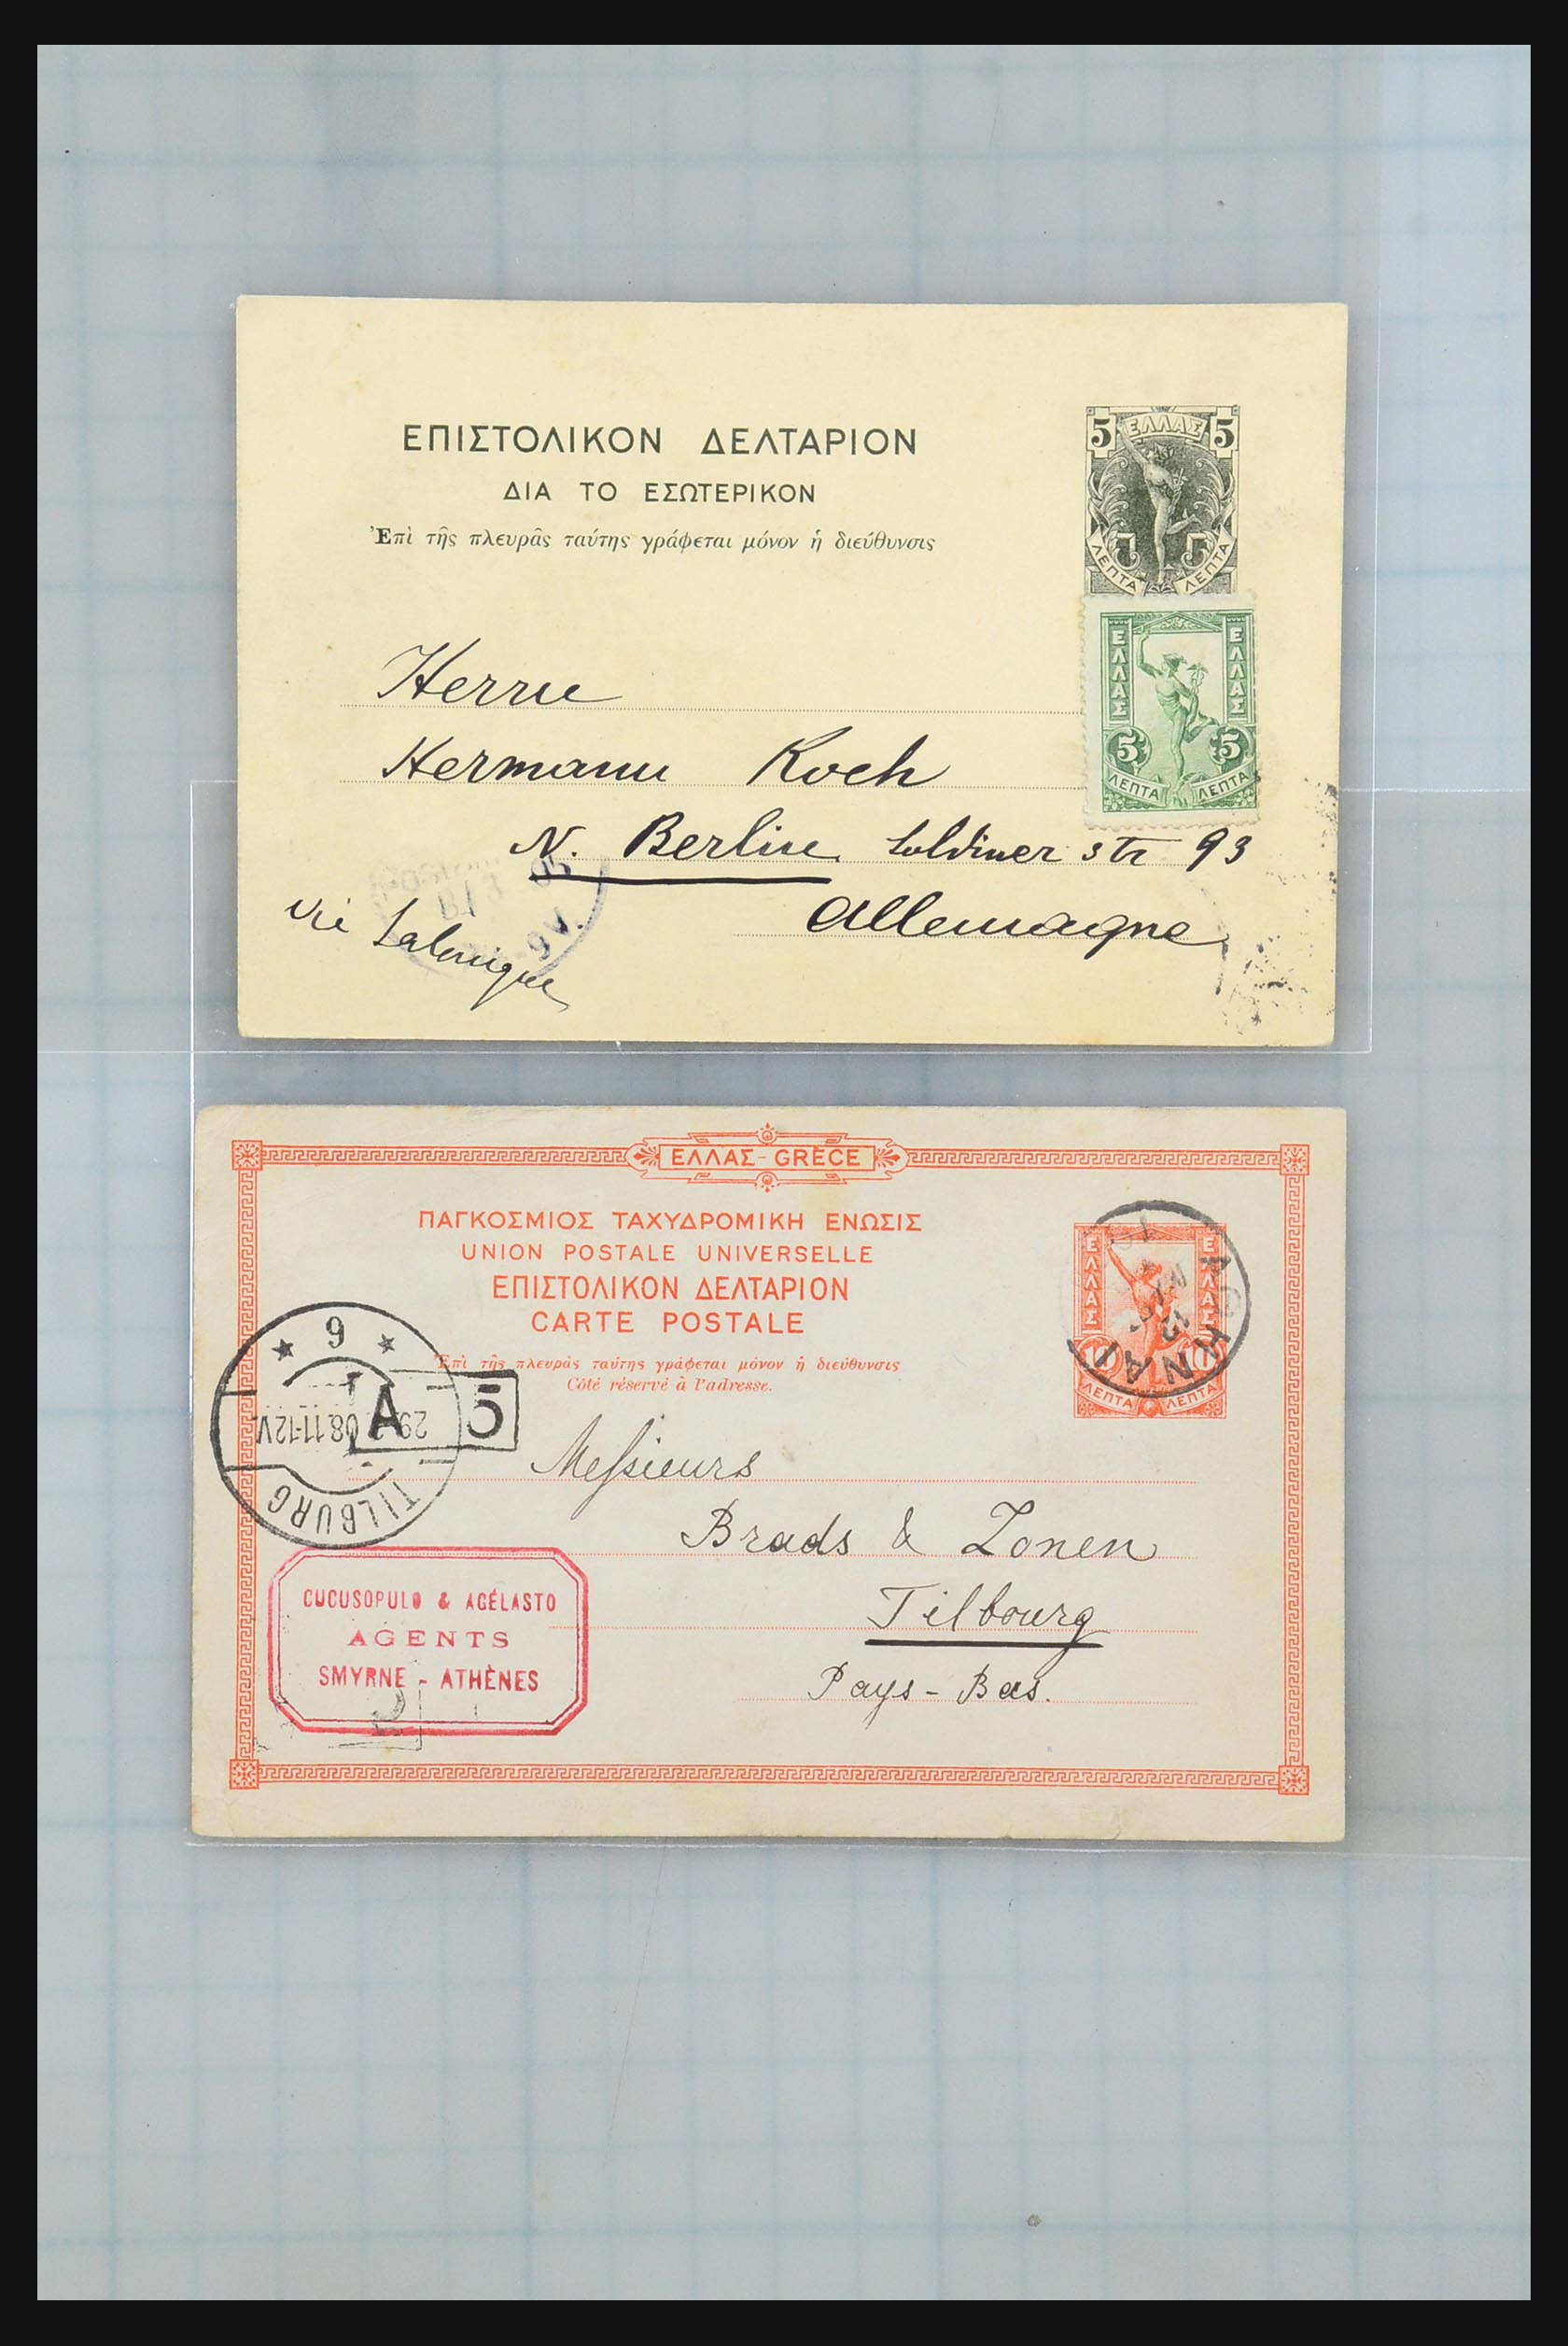 ΕΠΙΣΤΟΛΙΚΟΝ ΔΕΛΤΑΡΙΟΝ
ΔΙΑ ΤΟ ΕΣΩΤΕΡΙΚΟΝ
Ἐπὶ τῆς πλευρᾶς ταύτης γράφεται μόνον ἡ διεύθυνσις
5 ΕΛΛΑΣ 5
ΛΕΠΤΑ ΛΕΠΤΑ
ΕΛΛΑΣ ΕΛΛΑΣ
5 5
ΛΕΠΤΑ ΛΕΠΤΑ
Herrn
Hermann Koch
N. Berlin Soldiner str 93
Allemagne
via Salonique
ΕΛΛΑΣ - GRÈCE
ΠΑΓΚΟΣΜΙΟΣ ΤΑΧΥΔΡΟΜΙΚΗ ΕΝΩΣΙΣ
UNION POSTALE UNIVERSELLE
ΕΠΙΣΤΟΛΙΚΟΝ ΔΕΛΤΑΡΙΟΝ
CARTE POSTALE
Ἐπὶ τῆς πλευρᾶς ταύτης γράφεται μόνον ἡ διεύθυνσις
Côté réservé à l'adresse.
ΕΛΛΑΣ ΕΛΛΑΣ
10 10
ΛΕΠΤΑ ΛΕΠΤΑ
ΑΘΗΝΑΙ
9
08.11-12V
TILBURG
A 5
Messieurs
Brads & Zonen
Tilbourg
Pays-Bas.
CUCUSOPULO & AGÉLASTO
AGENTS
SMYRNE - ATHÈNES